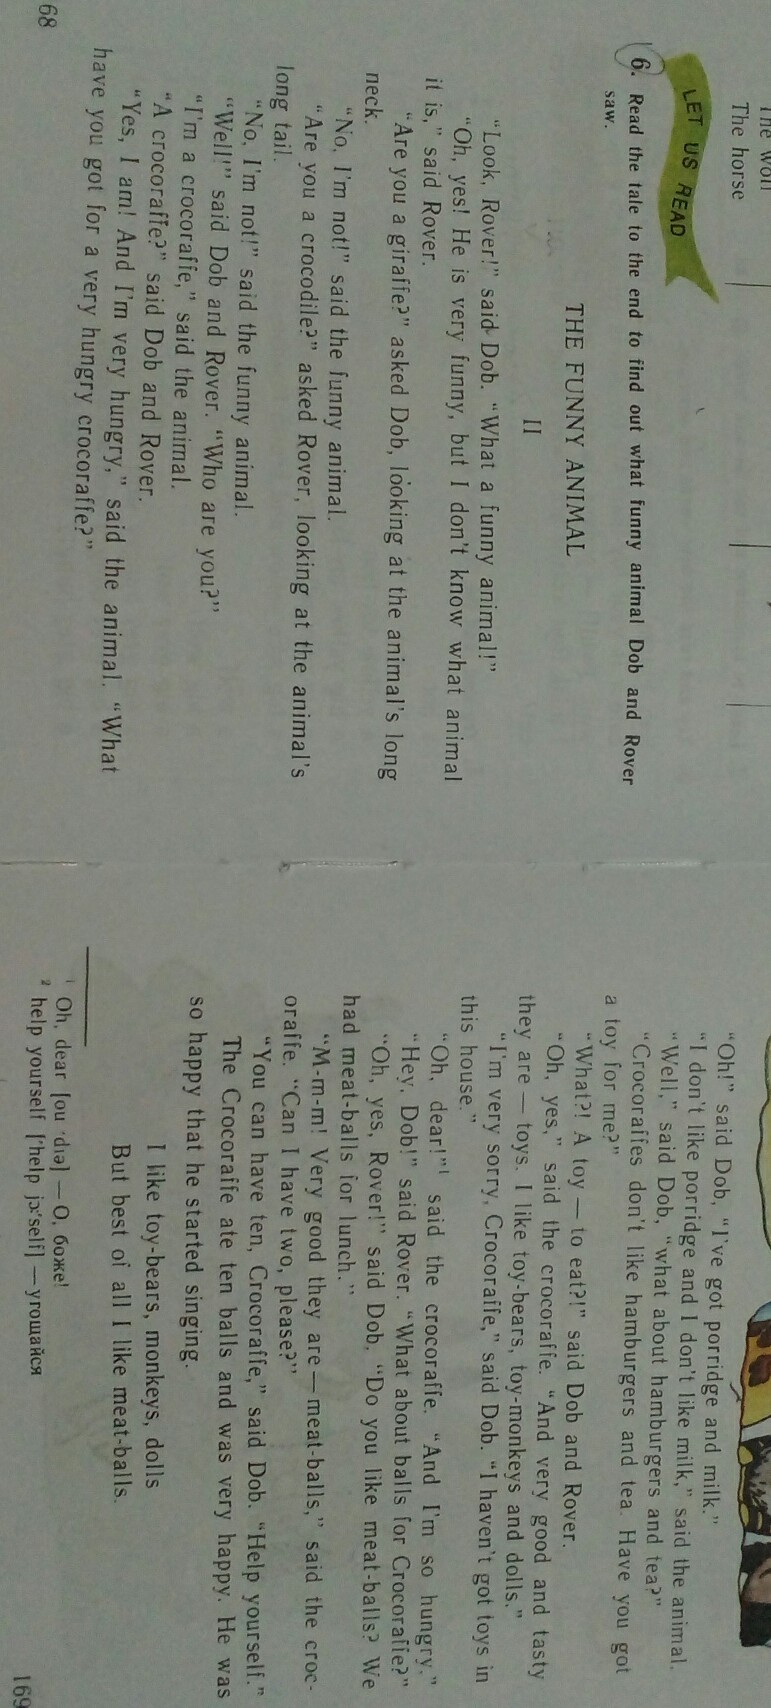 The wolf
The horse
LET US READ
6. Read the tale to the end to find out what funny animal Dob and Rover
saw.
THE FUNNY ANIMAL
II
“Look, Rover!” said Dob. “What a funny animal!”
“Oh, yes! He is very funny, but I don't know what animal
it is,” said Rover.
“Are you a giraffe?” asked Dob, looking at the animal's long
neck.
“No, I'm not!” said the funny animal.
“Are you a crocodile?” asked Rover, looking at the animal's
long tail.
“No, I'm not!” said the funny animal.
“Well!” said Dob and Rover. “Who are you?”
“I'm a crocoraffe,” said the animal.
“A crocoraffe?” said Dob and Rover.
“Yes, I am! And I'm very hungry,” said the animal. “What
have you got for a very hungry crocoraffe?”
68
“Oh!” said Dob, “I've got porridge and milk.”
“I don't like porridge and I don't like milk,” said the animal.
“Well,” said Dob, “what about hamburgers and tea?”
“Crocoraffes don't like hamburgers and tea. Have you got
a toy for me?”
“What?! A toy — to eat?!” said Dob and Rover.
“Oh, yes,” said the crocoraffe. “And very good and tasty
they are — toys. I like toy-bears, toy-monkeys and dolls.”
“I'm very sorry, Crocoraffe,” said Dob. “I haven't got toys in
this house.”
“Oh, dear!”¹ said the crocoraffe. “And I'm so hungry.”
“Hey, Dob!” said Rover. “What about balls for Crocoraffe?”
“Oh, yes, Rover!” said Dob. “Do you like meat-balls? We
had meat-balls for lunch.”
“M-m-m! Very good they are — meat-balls,” said the croc-
oraffe. “Can I have two, please?”
“You can have ten, Crocoraffe,” said Dob. “Help yourself.”
The Crocoraffe ate ten balls and was very happy. He was
so happy that he started singing.
I like toy-bears, monkeys, dolls
But best of all I like meat-balls.
¹ Oh, dear [ou ˈdɪə] — О, боже!
² help yourself [ˈhelp jɔːˈself] — угощайся
169